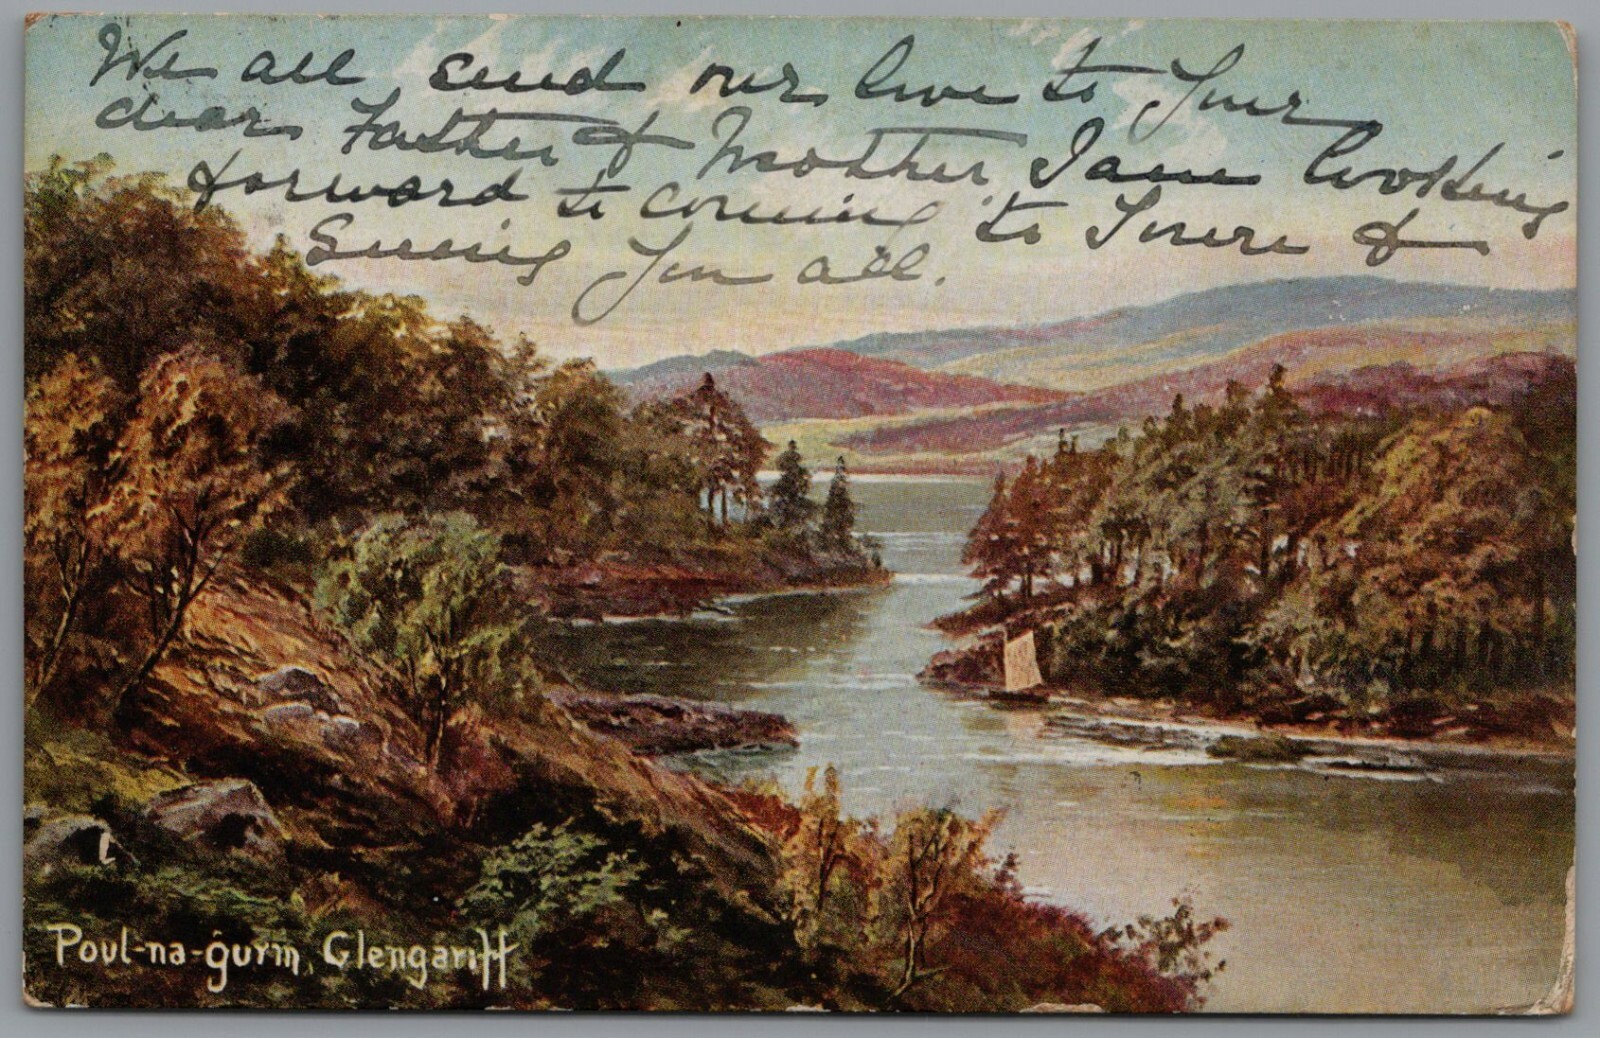 We all send our love to your
dear Father & Mother, I am looking
forward to coming to & 
Seeing you all.
Poul-na-gurm, Glengariff